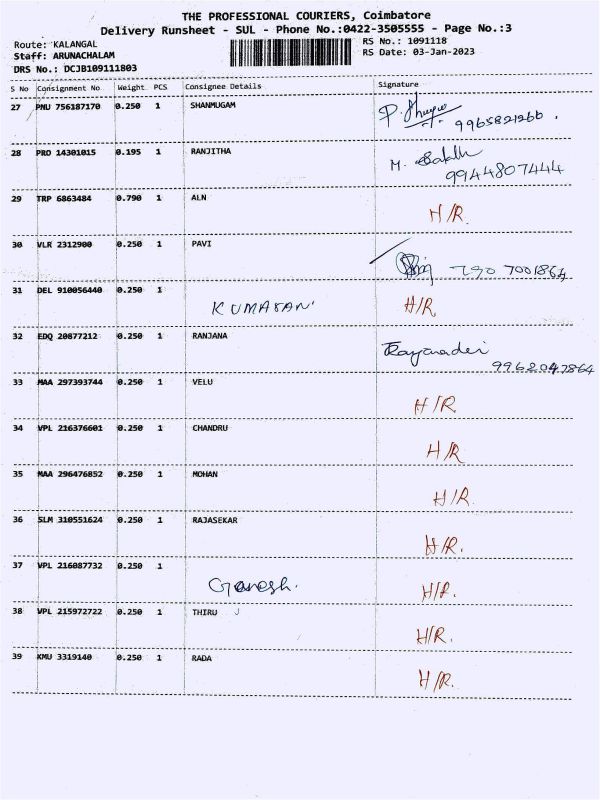 THE PROFESSIONAL COURIERS, Coimbatore
Delivery Runsheet - SUL - Phone No.:0422-3505555 - Page No.:3
Route: KALANGAL
RS No.: 1091118
Staff: ARUNACHALAM
RS Date: 03-Jan-2023
DRS No.: DCJB109111803
S No Consignment No Weight PCS Consignee Details Signature
27 PNU 756187170 0.250 1 SHANMUGAM
9965821266.
28 PRO 14301015 0.195 1 RANJITHA M.
9944807444
29 TRP 6863484 0.790 1 ALN H/R.
30 VLR 2312900 0.250 1 PAVI 790 7001864
31 DEL 910056440 0.250 1 KUMARAN H/R
32 EDQ 20877212 0.250 1 RANJANA
9962047864
33 MAA 297393744 0.250 1 VELU H/R
34 VPL 216376601 0.250 1 CHANDRU H/R
35 MAA 296476852 0.250 1 MOHAN H/R
36 SLM 310551624 0.250 1 RAJASEKAR H/R.
37 VPL 216087732 0.250 1 Ganesh. H/R.
38 VPL 215972722 0.250 1 THIRU H/R.
39 KMU 3319140 0.250 1 RADA H/R.